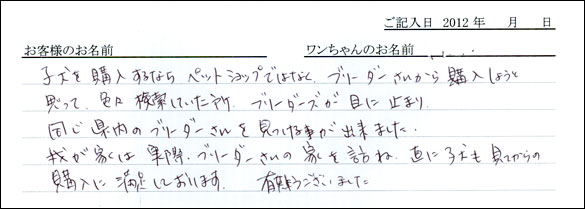 ご記入日 2012 年 月 日
お客様のお名前 ワンちゃんのお名前
子犬を購入するなら ペットショップではなく、ブリーダーさんから購入しようと
思って、色々検索していた所、ブリーダーズが目に止まり、
同じ県内のブリーダーさんを見つける事が出来ました。
我が家は実際、ブリーダーさんの家を訪ね、直に子犬も見てからの
購入に満足しております。 有難うございました